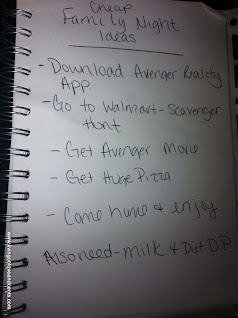 Cheap
Family Night
Ideas
- Download Avenger Reality
App
- Go to Walmart - Scavenger
Hunt
- Get Avenger Movie
- Get Huge Pizza
- Come home & enjoy
Also need - milk & Diet DP